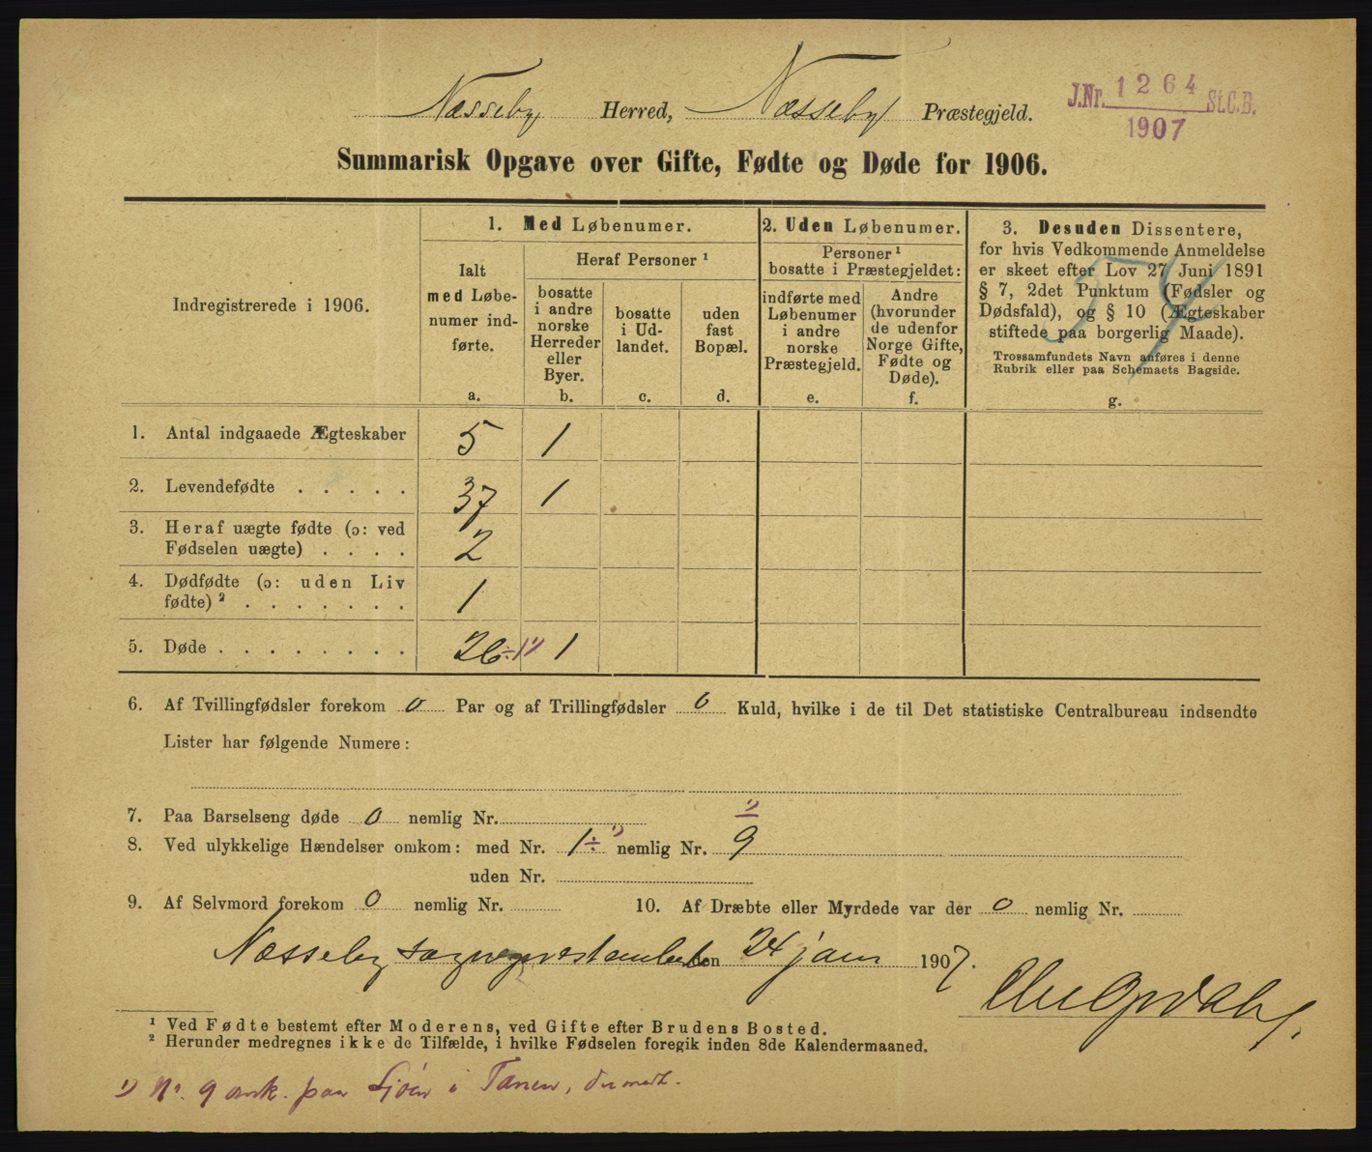 Næsseby Herred, Næsseby Præstegjeld.
J.Nr. 1264 St.C.B.
1907
Summarisk Opgave over Gifte, Fødte og Døde for 1906.
Indregistrerede i 1906.
1. Med Løbenumer.
Ialt
med Løbe-
numer ind-
førte.
a.
Heraf Personer ¹
bosatte
i andre
norske
Herreder
eller
Byer.
b.
bosatte
i Ud-
landet.
c.
uden
fast
Bopæl.
d.
2. Uden Løbenumer.
Personer ¹
bosatte i Præstegjeldet:
indførte med
Løbenumer
i andre
norske
Præstegjeld.
e.
Andre
(hvorunder
de udenfor
Norge Gifte,
Fødte og
Døde).
f.
3. Desuden Dissentere,
for hvis Vedkommende Anmeldelse
er skeet efter Lov 27 Juni 1891
§ 7, 2det Punktum (Fødsler og
Dødsfald), og § 10 (Ægteskaber
stiftede paa borgerlig Maade).
Trossamfundets Navn anføres i denne
Rubrik eller paa Schemaets Bagside.
g.
1. Antal indgaaede Ægteskaber 5 1
2. Levendefødte . . . . . 37 1
3. Heraf uægte fødte (ɔ: ved
Fødselen uægte) . . . . 2
4. Dødfødte (ɔ: uden Liv
fødte) ² . . . . . . . 1
5. Døde . . . . . . . . 26 ÷1 ¹) 1
6. Af Tvillingfødsler forekom 0 Par og af Trillingfødsler 0 Kuld, hvilke i de til Det statistiske Centralbureau indsendte
Lister har følgende Numere:
7. Paa Barselseng døde 0 nemlig Nr.
8. Ved ulykkelige Hændelser omkom: med Nr. 1 ÷ ¹) nemlig Nr. 9 ¹)
uden Nr.
9. Af Selvmord forekom 0 nemlig Nr. 10. Af Dræbte eller Myrdede var der 0 nemlig Nr.
Næsseby sogneprestembede den 24 jan 1907.
¹ Ved Fødte bestemt efter Moderens, ved Gifte efter Brudens Bosted.
² Herunder medregnes ikke de Tilfælde, i hvilke Fødselen foregik inden 8de Kalendermaaned.
¹) Nr. 9 omk. paa Sjøen i Tanen,